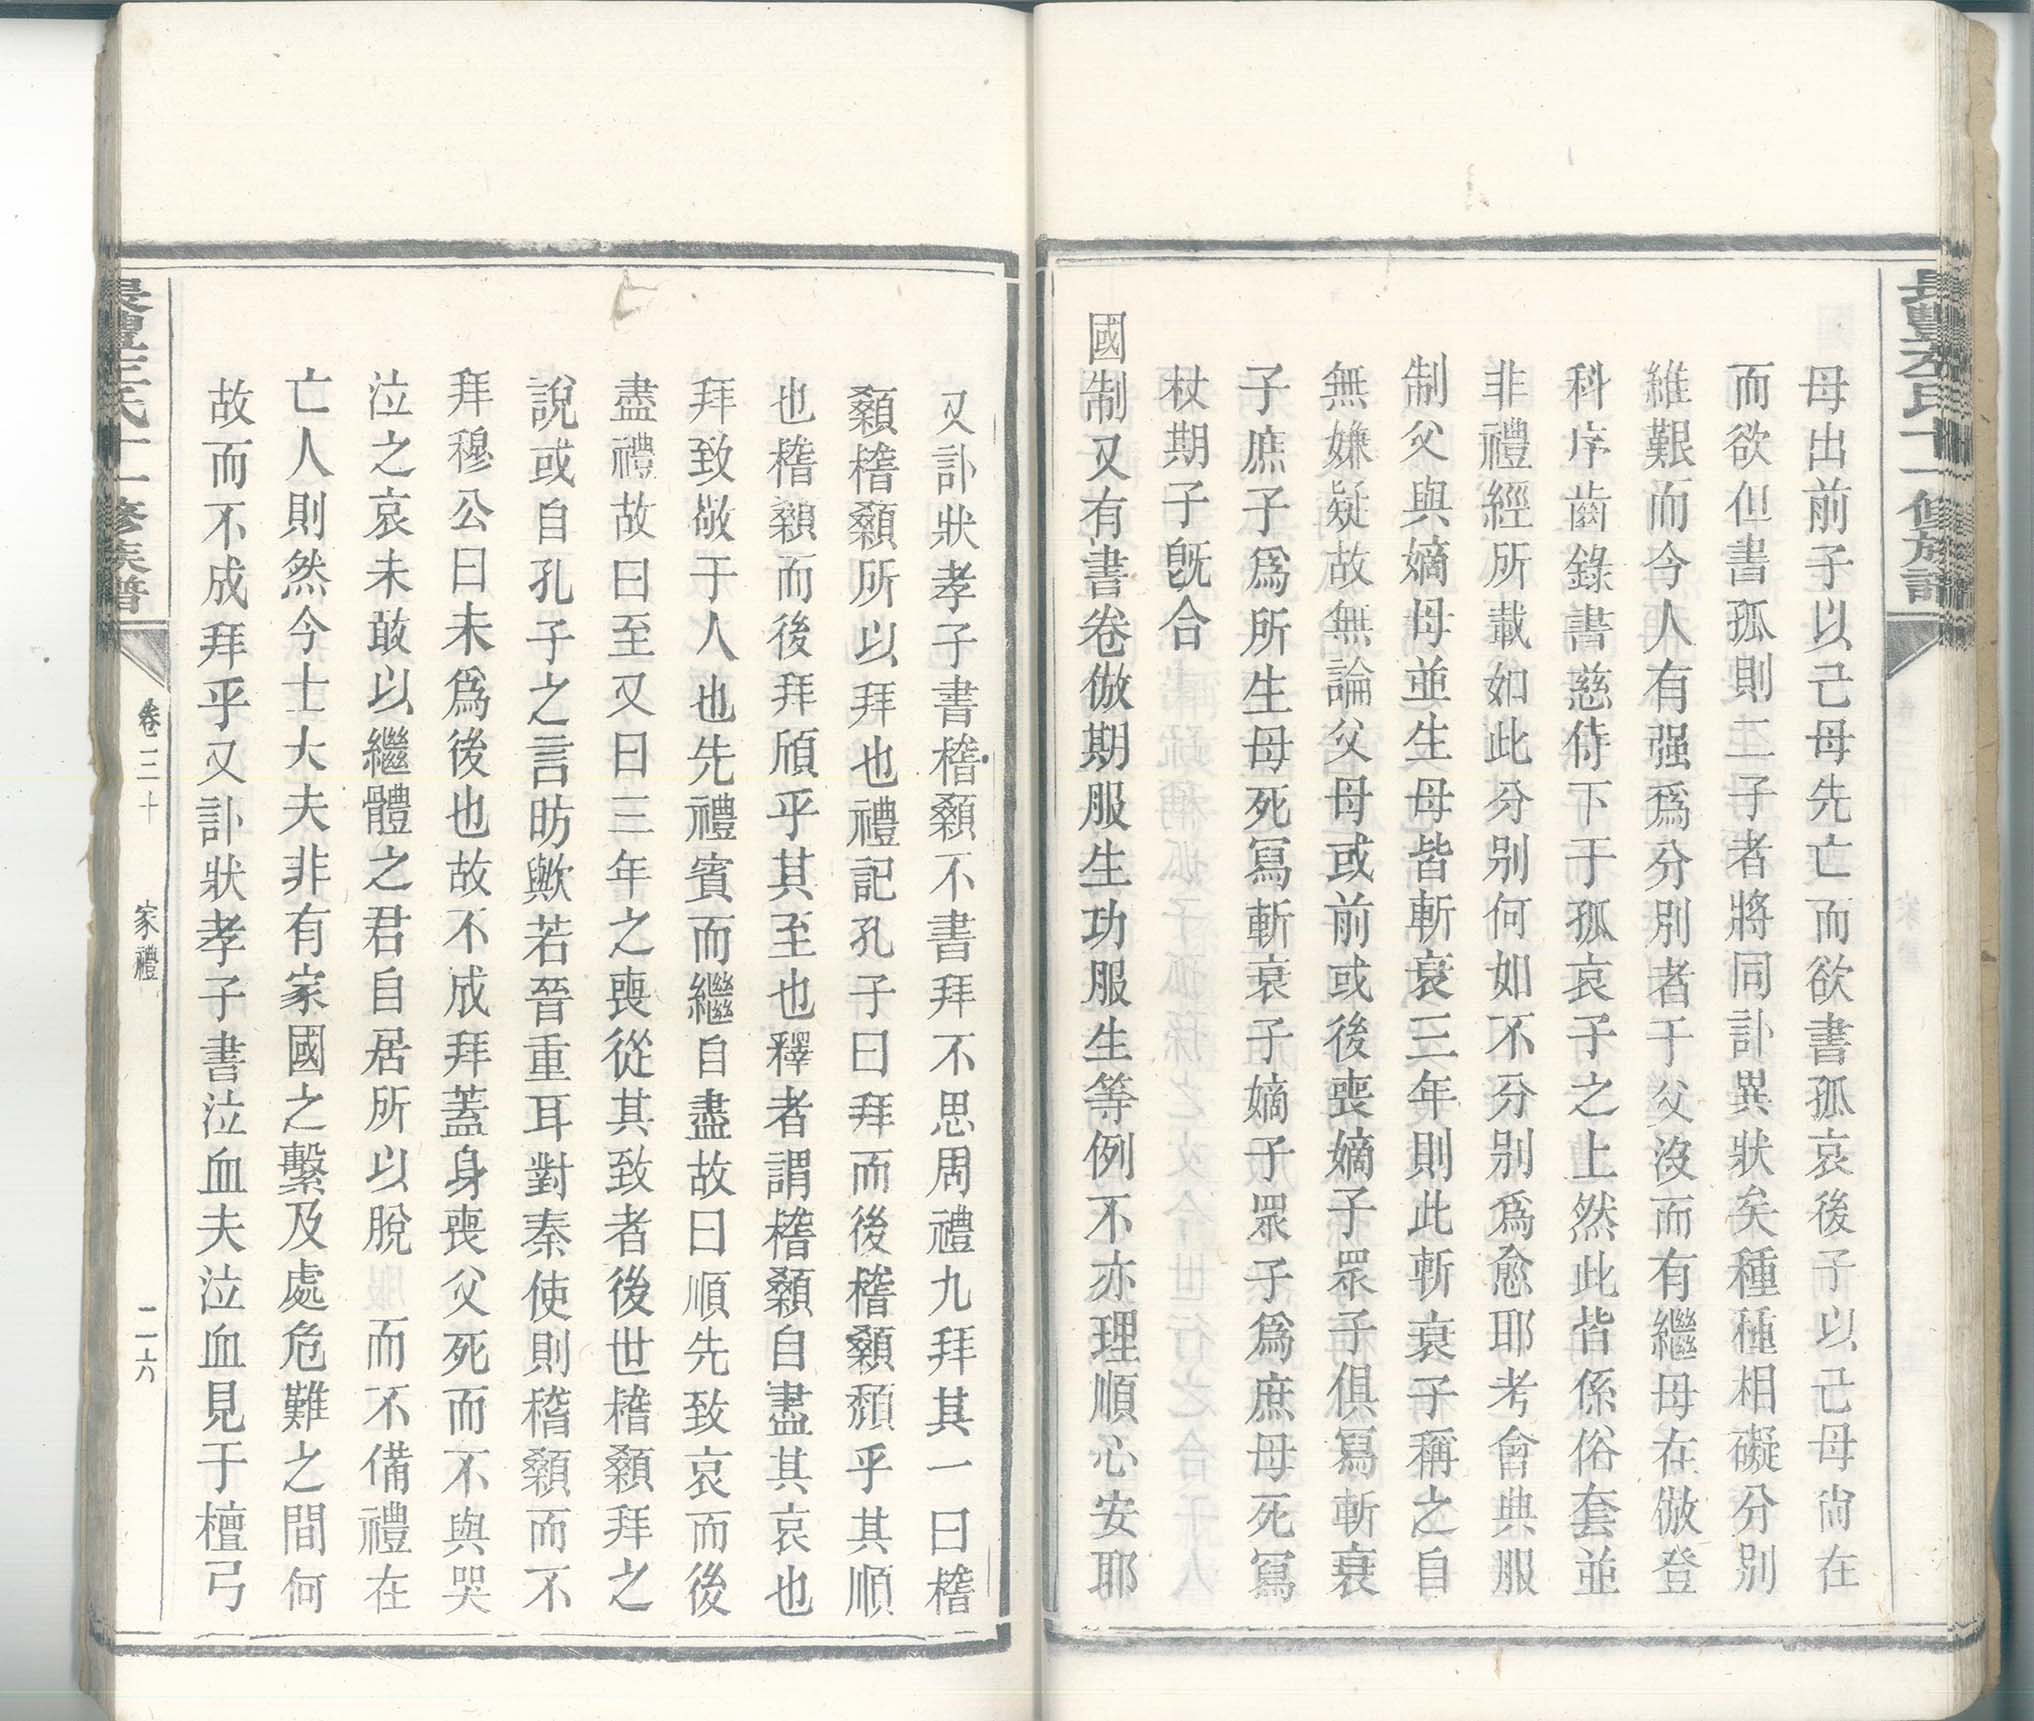 母出前子以己母先亡而欲書孤哀後子以己母尙在
而欲但書孤則二子者將同訃異狀矣種種相礙分別
維艱而今人有强爲分別者于父沒而有繼母在倣登
科序齒錄書慈侍下于孤哀子之上然此皆係俗套並
非禮經所載如此分别何如不分别爲愈耶考會典服
制父與嫡母並生母皆斬衰三年則此斬衰子稱之自
無嫌疑故無論父母或前或後喪嫡子眾子俱寫斬衰
子庶子爲所生母死寫斬衰子嫡子眾子爲庶母死寫
杖期子旣合
國制又有書卷倣期服生功服生等例不亦理順心安耶
又訃狀孝子書稽顙不書拜不思周禮九拜其一曰稽
顙稽顙所以拜也禮記孔子曰拜而後稽顙頹乎其順
也稽顙而後拜頎乎其至也釋者謂稽顙自盡其哀也
拜致敬于人也先禮賓而繼自盡故曰順先致哀而後
盡禮故曰至又曰三年之喪從其致者後世稽顙拜之
說或自孔子之言昉歟若晉重耳對秦使則稽顙而不
拜穆公曰未爲後也故不成拜蓋身喪父死而不與哭
泣之哀未敢以繼體之君自居所以脫服而不備禮在
亡人則然今士大夫非有家國之繫及處危難之間何
故而不成拜乎又訃狀孝子書泣血夫泣血見于檀弓
卷三十
家禮
二六